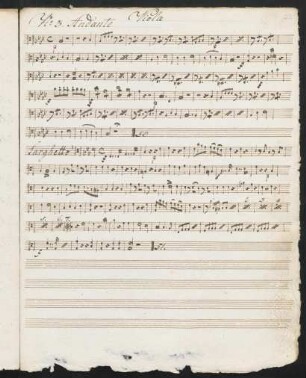 No. 3 Andante Viola
Larghetto